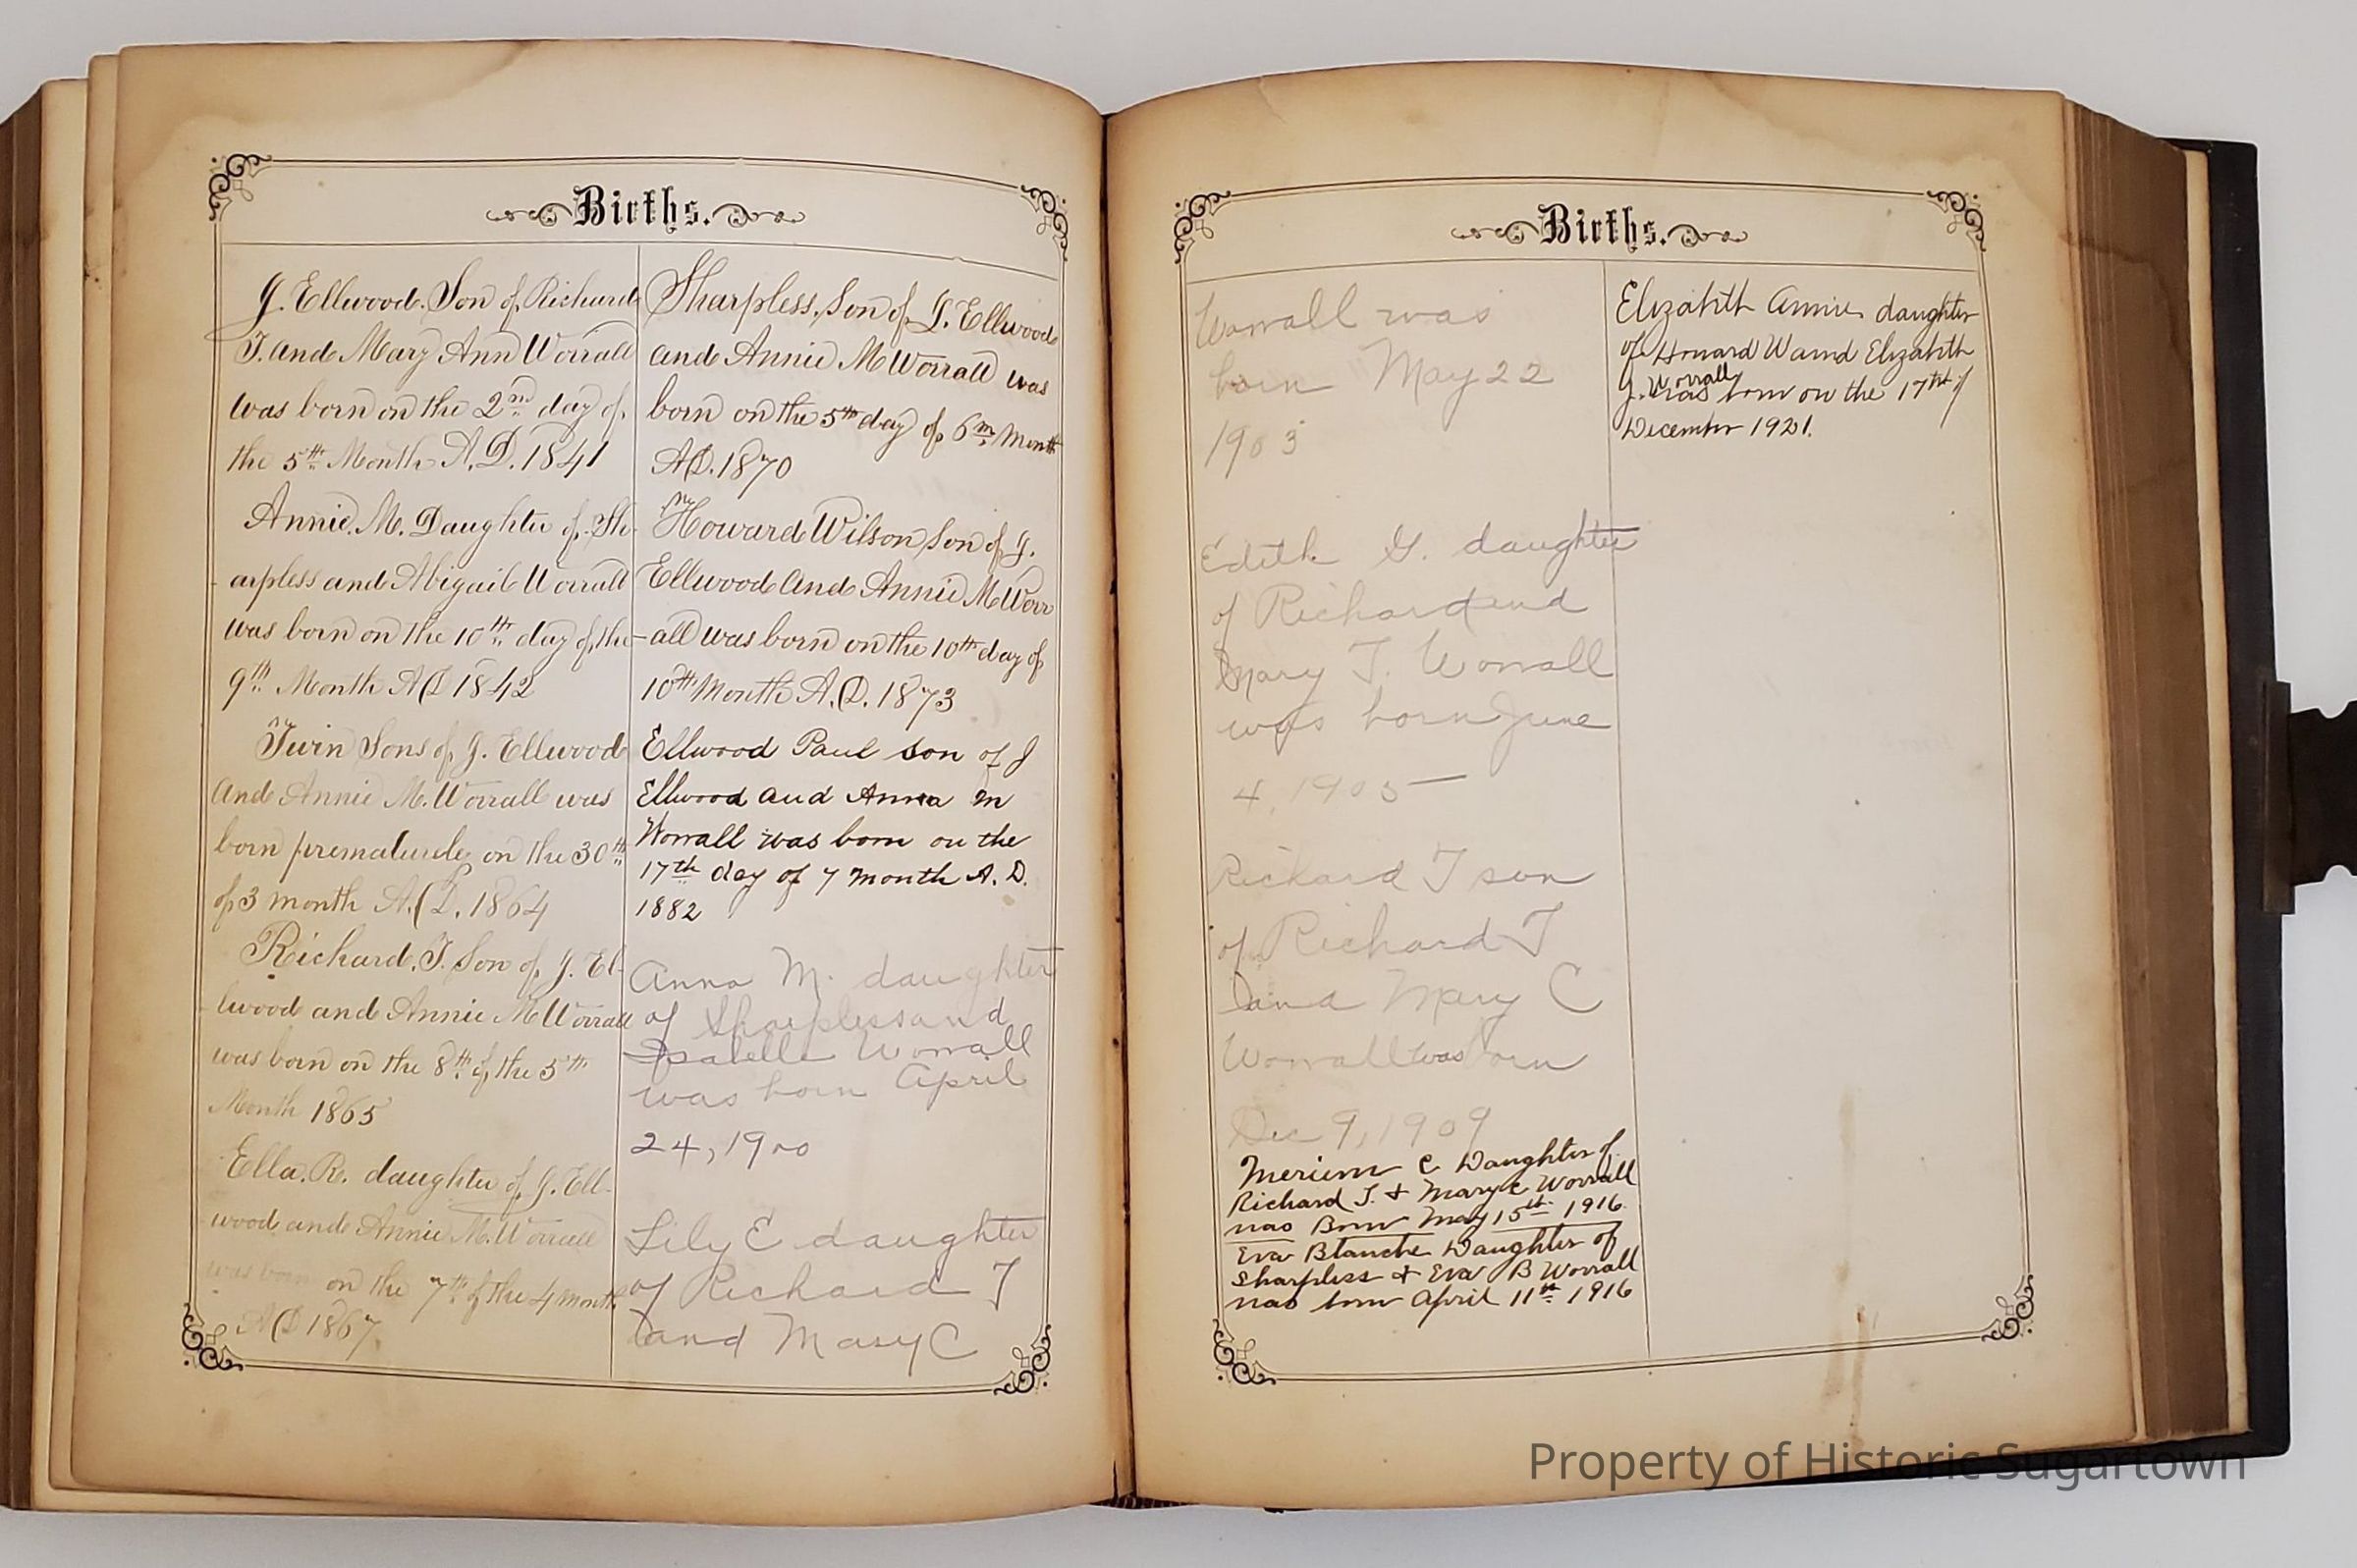 Births.
J. Ellwood. Son of Richard
T. and Mary Ann Worrall
was born on the 2nd day of
the 5th Month A.D. 1841
Annie. M. Daughter of Sh-
arpless and Abigail Worrall
was born on the 10th day of the
9th Month AD 1842
Twin Sons of J. Ellwood
and Annie M. Worrall was
born prematurely on the 30th
of 3 month A.D. 1864
Richard. T. Son of J. El-
lwood and Annie M Worrall
was born on the 8th of the 5th
Month 1865
Ella. R. daughter of J. Ell-
wood and Annie M. Worrall
was born on the 7th of the 4 month
AD 1867
Sharpless, Son of J. Ellwood
and Annie M Worrall was
born on the 5th day of 6m Month
AD. 1870
Howard Wilson Son of J.
Ellwood and Annie M Worr
-all was born on the 10th day of
10th Month A.D. 1873
Ellwood Paul son of J
Ellwood and Anna M
Worrall was born on the
17th day of 7 month A. D.
1882
Anna M. daughter
of Sharpless and
Isabella Worrall
was born April
24, 1900
Lily E daughter
of Richard T
and Mary C
Births.
Worrall was
born May 22
1903
Edith G. daughter
of Richard and
Mary T. Worrall
was born June
4, 1905
Richard T son
of Richard T
and Mary C
Worrall was born
Dec 9, 1909
Meriem C Daughter of
Richard T. & Mary C Worrall
was Born May 15st 1916
Eva Blanche Daughter of
Sharpless & Eva B Worrall
was born April 11st 1916
Elizabeth Annie daughter
of Howard W and Elizabeth
J. Worrall was born on the 17th of
December 1921.
Property of Historic Sugartown